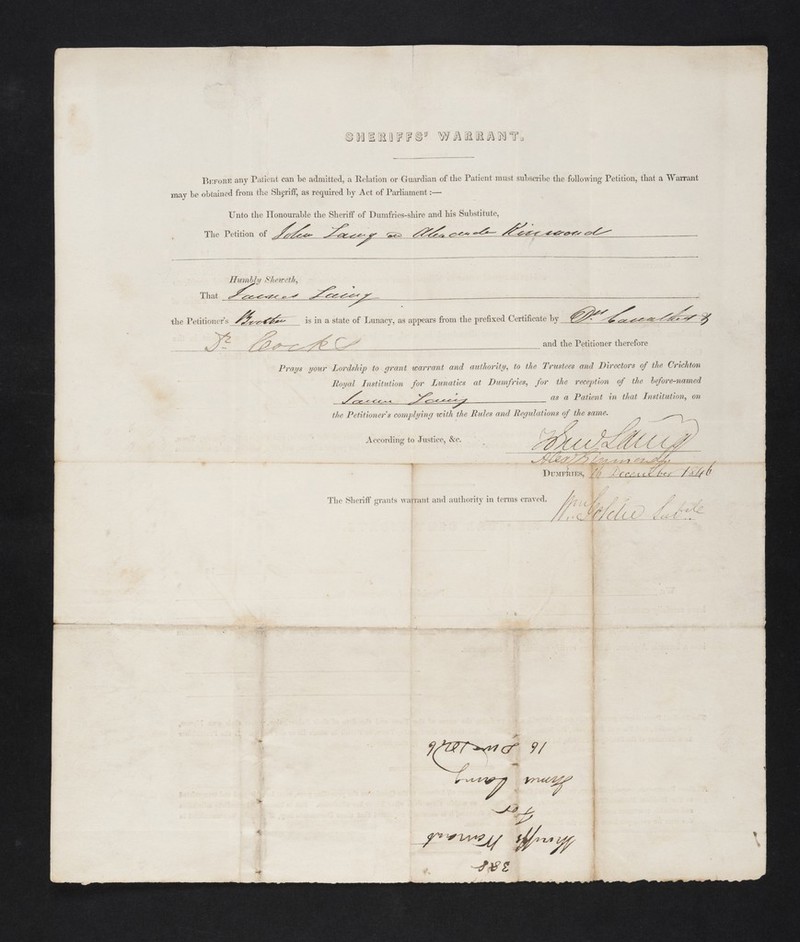 SHERIFFS' WARRANT.
BEFORE any Patient can be admitted, a Relation or Guardian of the Patient must subscribe the following Petition, that a Warrant
may be obtained from the Sheriff, as required by Act of Parliament:—
Unto the Honourable the Sheriff of Dumfries-shire and his Substitute,
The Petition of John Laing Alexander Kinmond
Humbly Sheweth,
That James Laing
the Petitioner's Brother is in a state of Lunacy, as appears from the prefixed Certificate by Drs &
Dr Cocks and the Petitioner therefore
Prays your Lordship to grant warrant and authority, to the Trustees and Directors of the Crichton
Royal Institution for Lunatics at Dumfries, for the reception of the before-named
James Laing as a Patient in that Institution, on
the Petitioner's complying with the Rules and Regulations of the same.
According to Justice, &c. Laing
Alexr Kinmond
DUMFRIES, 16 December 1846
The Sheriff grants warrant and authority in terms craved.
388
Sheriffs Warrant
For
James Laing
16 1846